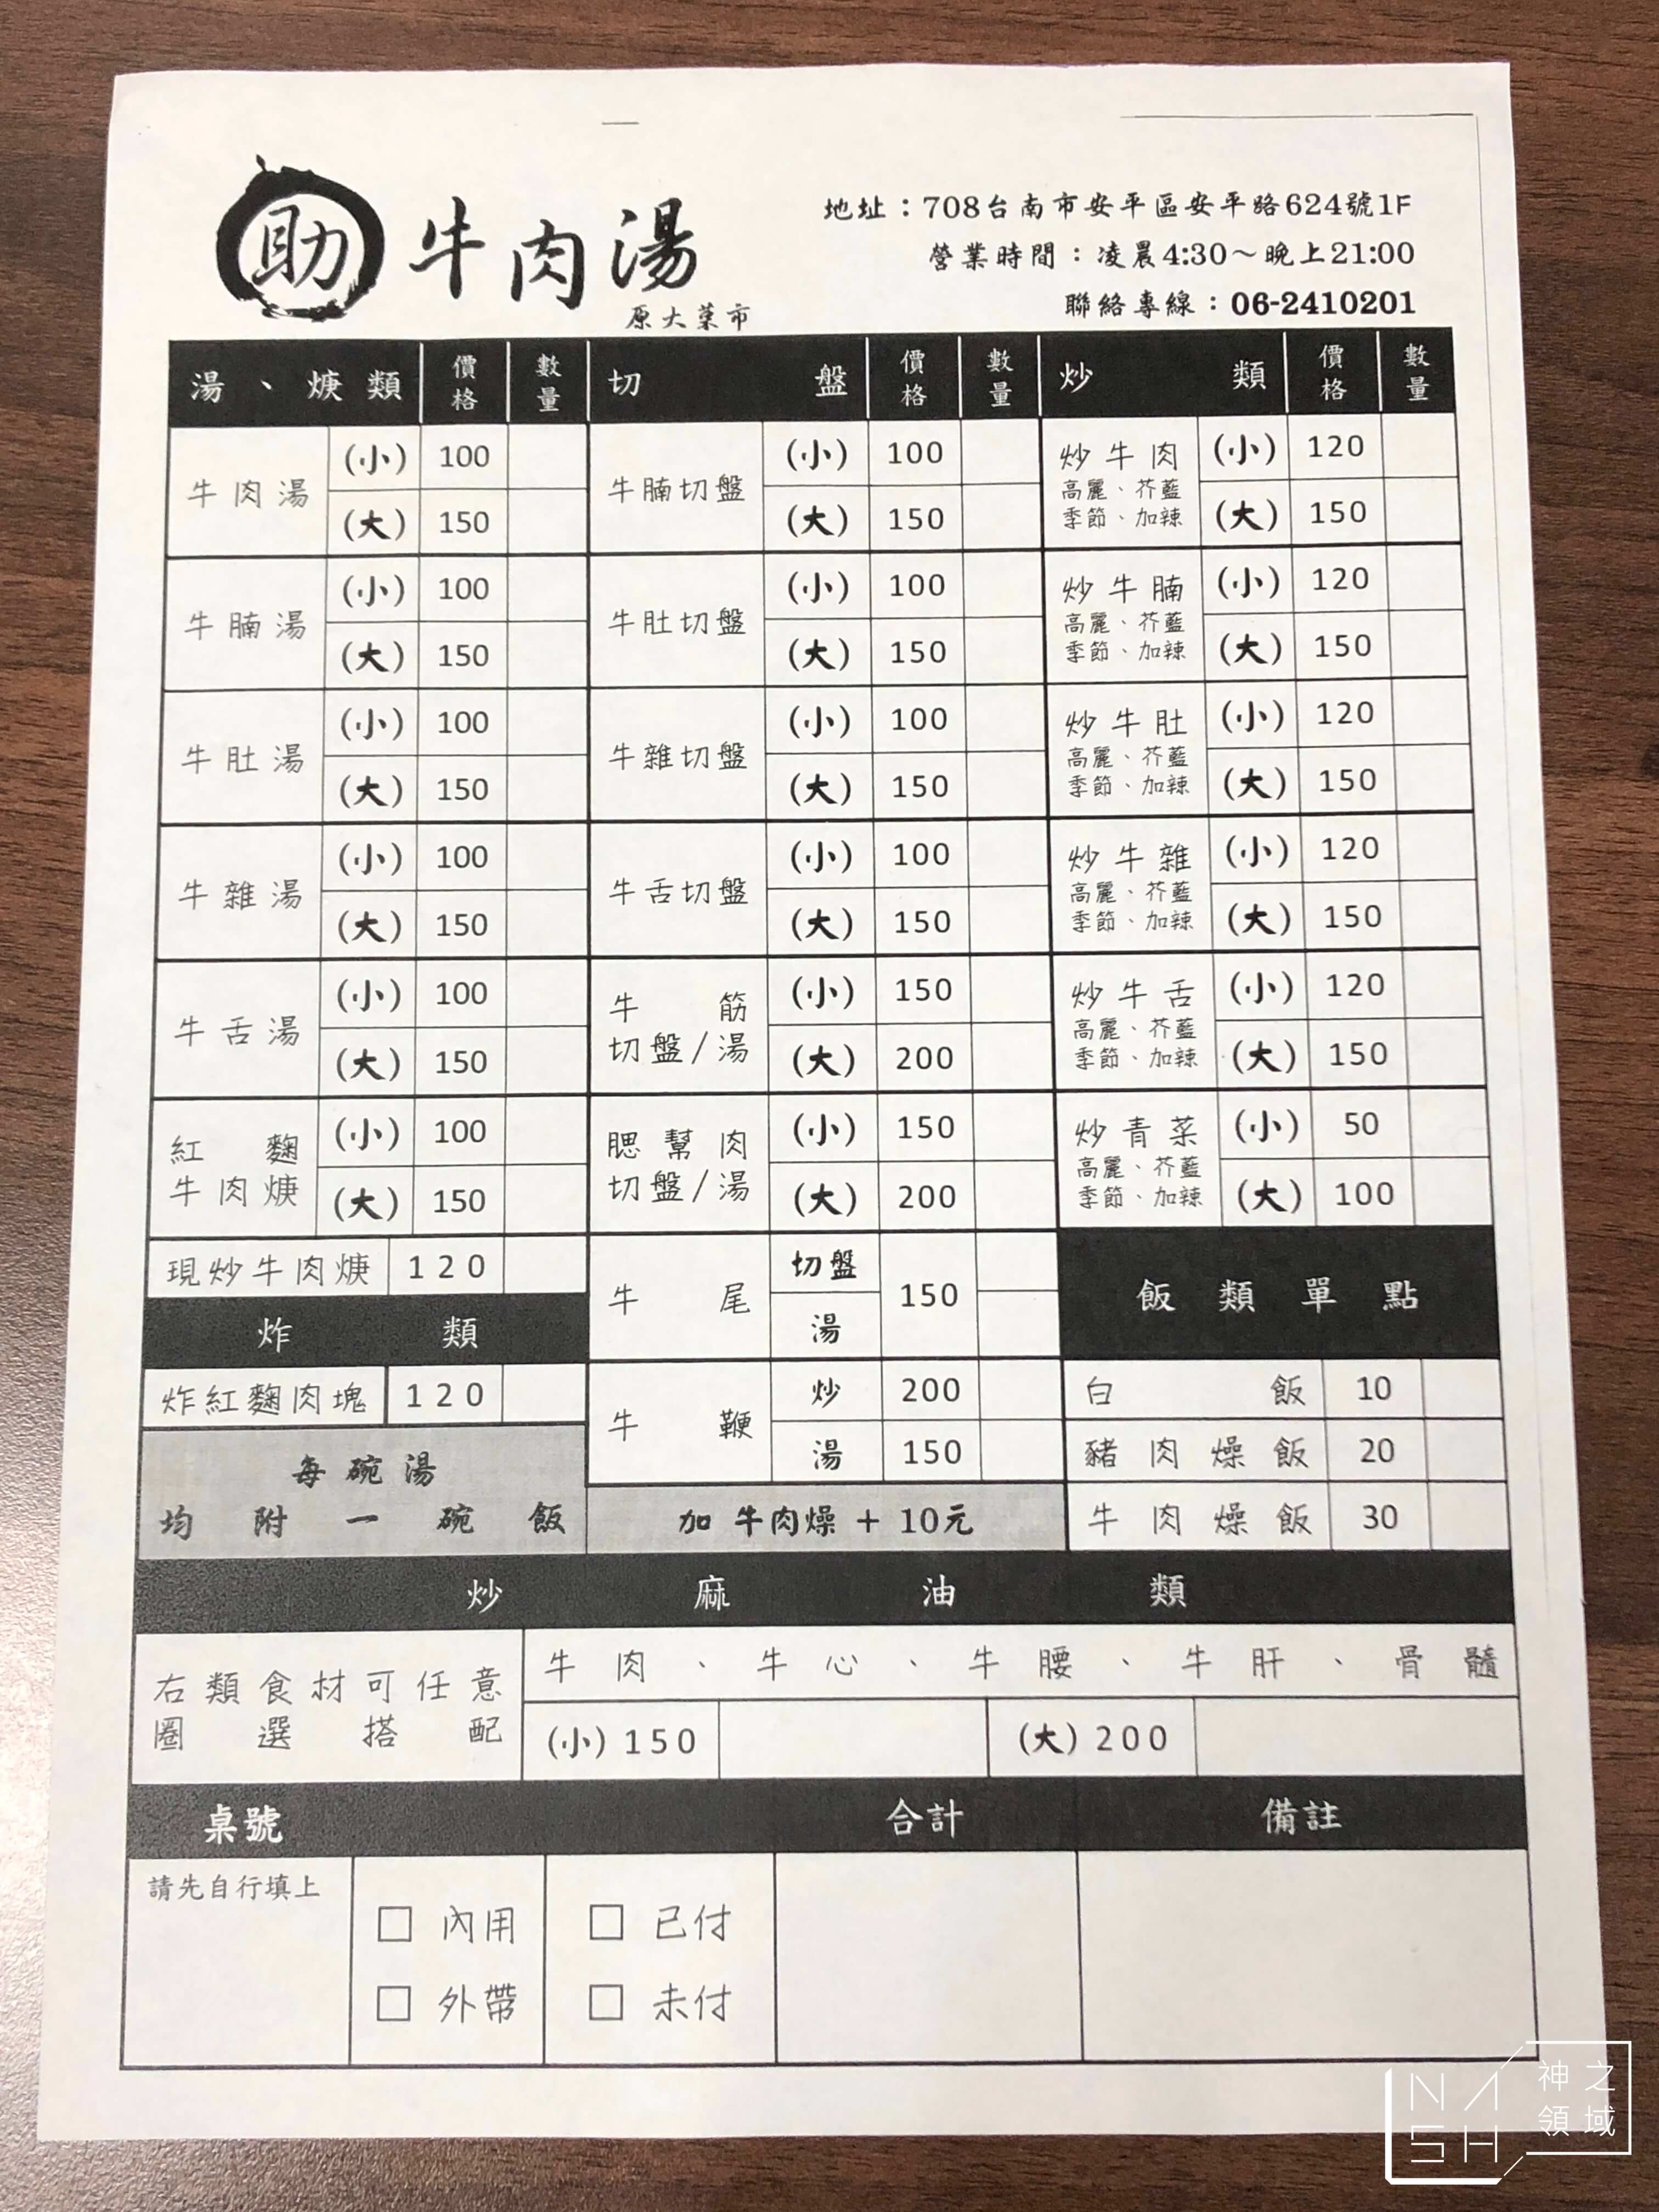 助 牛肉湯
原大菜市
地址：708台南市安平區安平路624號1F
營業時間：凌晨4:30～晚上21:00
聯絡專線：06-2410201
湯、焿類 價格 數量 切盤 價格 數量 炒類 價格 數量
牛肉湯 (小) 100
(大) 150
牛腩湯 (小) 100
(大) 150
牛肚湯 (小) 100
(大) 150
牛雜湯 (小) 100
(大) 150
牛舌湯 (小) 100
(大) 150
紅麴
牛肉焿 (小) 100
(大) 150
現炒牛肉焿 120
炸類
炸紅麴肉塊 120
每碗湯
均附一碗飯
牛腩切盤 (小) 100
(大) 150
牛肚切盤 (小) 100
(大) 150
牛雜切盤 (小) 100
(大) 150
牛舌切盤 (小) 100
(大) 150
牛筋
切盤/湯 (小) 150
(大) 200
腮幫肉
切盤/湯 (小) 150
(大) 200
牛尾 切盤 150
湯
牛鞭 炒 200
湯 150
加 牛肉燥 + 10元
炒牛肉 (小) 120
高麗、芥藍
季節、加辣 (大) 150
炒牛腩 (小) 120
高麗、芥藍
季節、加辣 (大) 150
炒牛肚 (小) 120
高麗、芥藍
季節、加辣 (大) 150
炒牛雜 (小) 120
高麗、芥藍
季節、加辣 (大) 150
炒牛舌 (小) 120
高麗、芥藍
季節、加辣 (大) 150
炒青菜 (小) 50
高麗、芥藍
季節、加辣 (大) 100
飯類單點
白飯 10
豬肉燥飯 20
牛肉燥飯 30
炒麻油類
右類食材可任意
圈選搭配
牛肉、牛心、牛腰、牛肝、骨髓
(小) 150 (大) 200
桌號 合計 備註
請先自行填上
□ 內用 □ 已付
□ 外帶 □ 未付
NASH
神之
領域